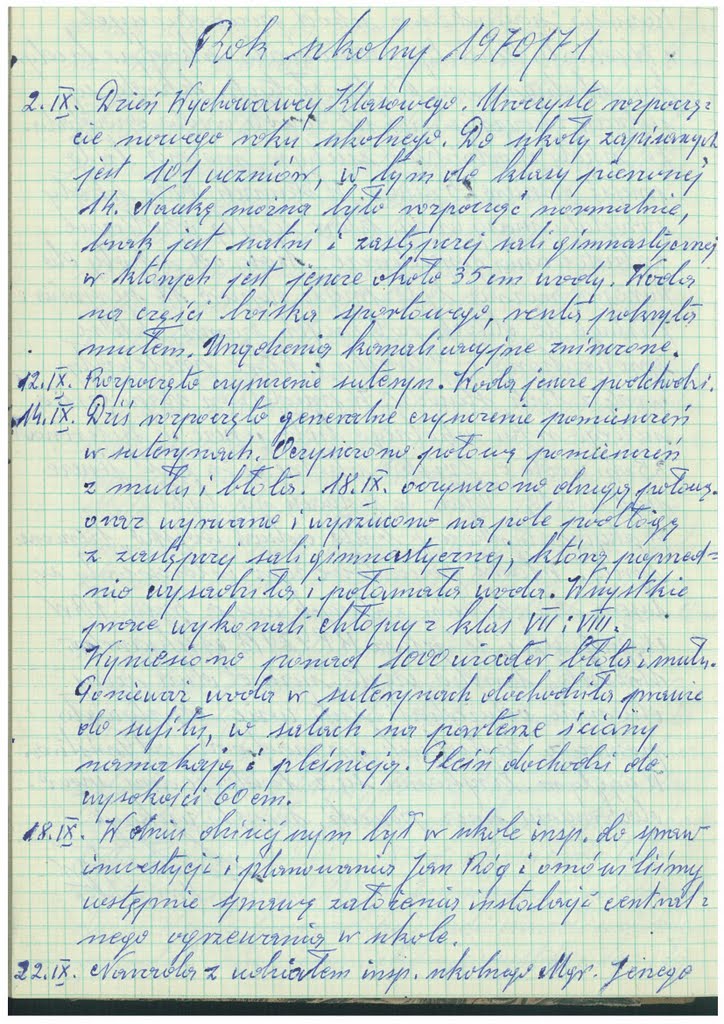 Rok szkolny 1970/71
2.IX. Dzień Wychowawcy Klasowego. Uroczyste rozpoczę-
cie nowego roku szkolnego. Do szkoły zapisanych
jest 101 uczniów, w tym do klasy pierwszej
14. Naukę można było rozpocząć normalnie,
brak jest szatni i zastępczej sali gimnastycznej
w których jest jeszcze około 35 cm wody. Woda
na części boiska sportowego, reszta pokryta
mułem. Urządzenia kanalizacyjne zniszczone.
12.IX. Rozpoczęto czyszczenie suteryn. Woda jeszcze podchodzi.
14.IX. Dziś rozpoczęto generalne czyszczenie pomieszczeń
w suterynach. Oczyszczono połowę pomieszczeń
z mułu i błota. 18.IX. oczyszczono drugą połowę
oraz wyrwano i wyrzucono na pole podłogę
z zastępczej sali gimnastycznej, którą poprzed=
nio wysadziła i połamała woda. Wszystkie
prace wykonali chłopcy z klas VII i VIII.
Wyniesiono ponad 1000 wiader błota i mułu.
Ponieważ woda w suterynach dochodziła prawie
do sufitu, w salach na parterze ściany
namakają i pleśnieją. Pleśń dochodzi do
wysokości 60 cm.
18.IX. W dniu dzisiejszym był w szkole insp. do spraw
inwestycji i planowania Jan Róg i omówiliśmy
wstępnie sprawę założenia instalacji central=
nego ogrzewania w szkole.
22.IX. Narada z udziałem insp. szkolnego Mgr. Jerzego